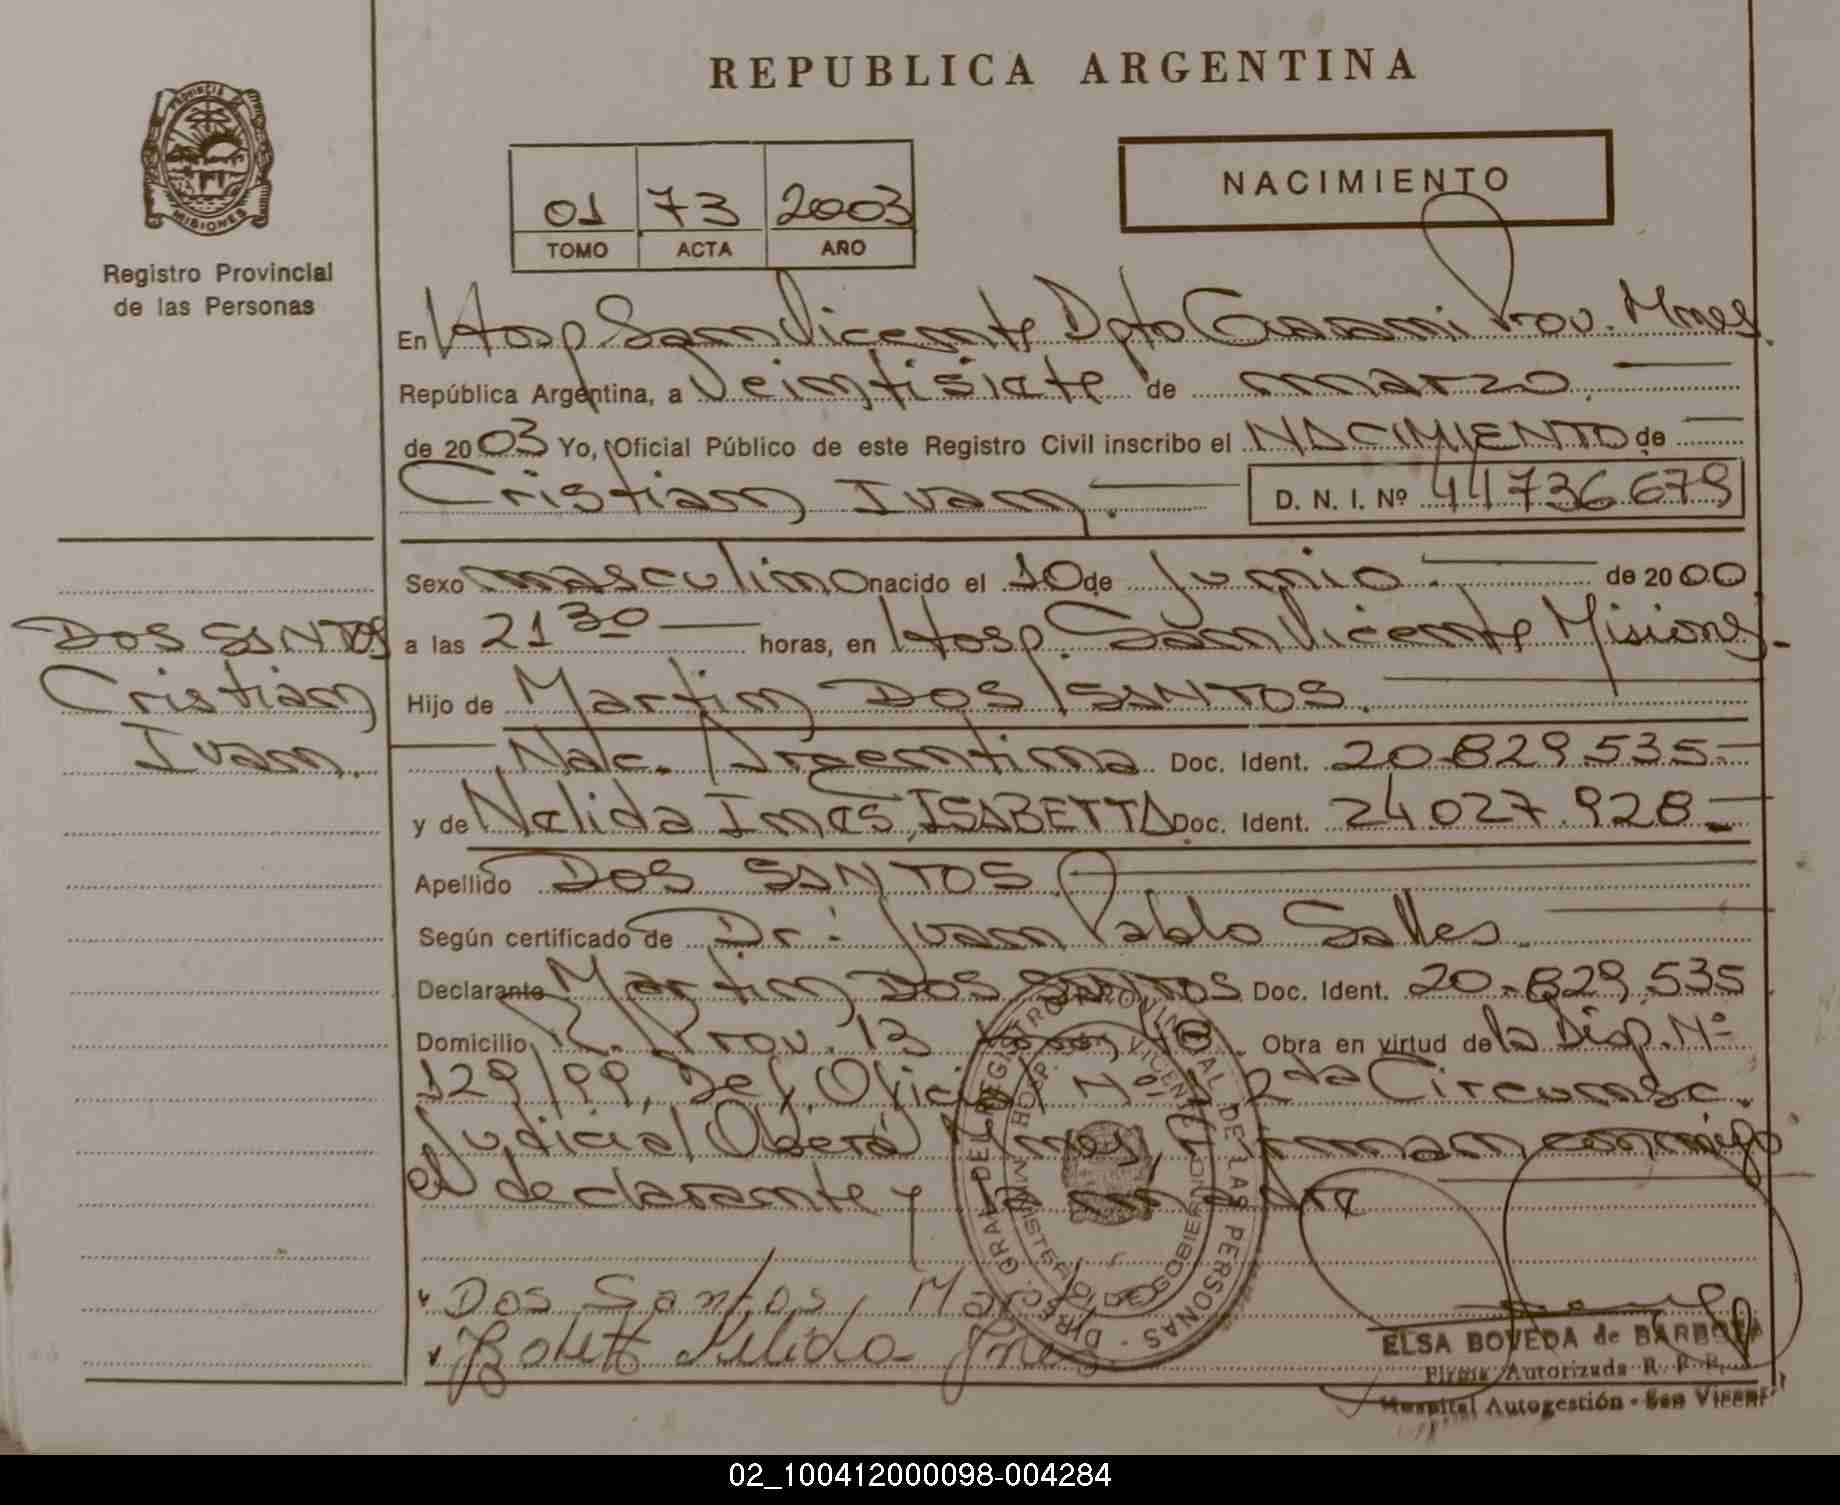 REPUBLICA ARGENTINA
PROVINCIA DE
MISIONES
Registro Provincial
de las Personas
01 73 2003
TOMO ACTA AÑO
NACIMIENTO
En Hosp San Vicente Dpto Guaraní Prov. Mnes.
República Argentina, a Veintisiete de marzo.
de 2003 Yo, Oficial Público de este Registro Civil inscribo el NACIMIENTO de
Cristian Ivan. D. N. I. Nº 44736679
Sexo masculino nacido el 10 de Junio. de 2000
a las 21 30 horas, en Hosp. San Vicente Misiones.-
Hijo de Martin DOS SANTOS.
Nac. Argentina Doc. Ident. 20.829.535.-
y de Nelida Ines ISABETTA Doc. Ident. 24.027.928.-
Apellido DOS SANTOS.
Según certificado de Dr: Juan Pablo Salles.
Declarante Martin DOS SANTOS Doc. Ident. 20.829.535
Domicilio R. Prov. 13 Obra en virtud de la Disp. Nº
129/99, Def. Oficial Nº 2da Circunsc.
Judicial Oberá Mnes, Firman conmigo
el declarante y la madre
DOS SANTOS
Cristian
Ivan.
Dos Santos, Martin
Nelida Ines
DIRECCION GRAL. DEL REGISTRO PROVINCIAL DE LAS PERSONAS
MINISTERIO DE GOBIERNO
HOSP. SAN VICENTE
ELSA BOVEDA de BARBOZA
Firma Autorizada R. P. P.
Hospital Autogestión - San Vicente
02_100412000098-004284